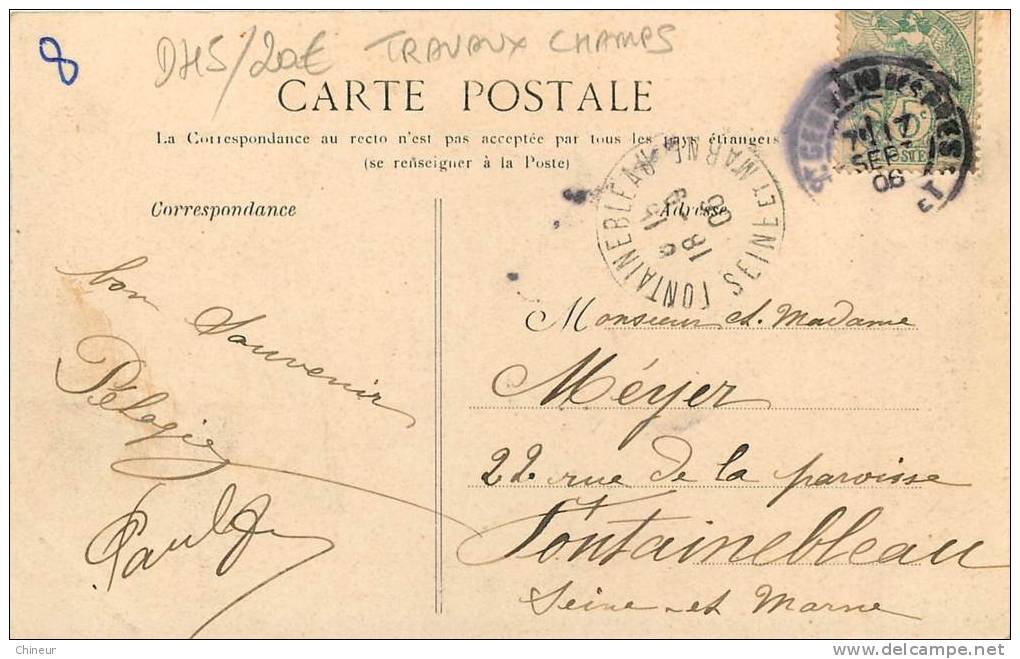 8
DH5/20€ TRAVAUX CHAMPS
CARTE POSTALE
La Correspondance au recto n'est pas acceptée par tous les pays étrangers
(se renseigner à la Poste)
5c
17
SEPT
06
FONTAINEBLEAU
SEINE ET MARNE
18
9
06
Correspondance
Adresse
bon Souvenir
Pélagie
Paul
Monsieur et Madame
Méyer
22 rue de la paroisse
Fontainebleau
Seine et Marne
Chineur
delcampe.net